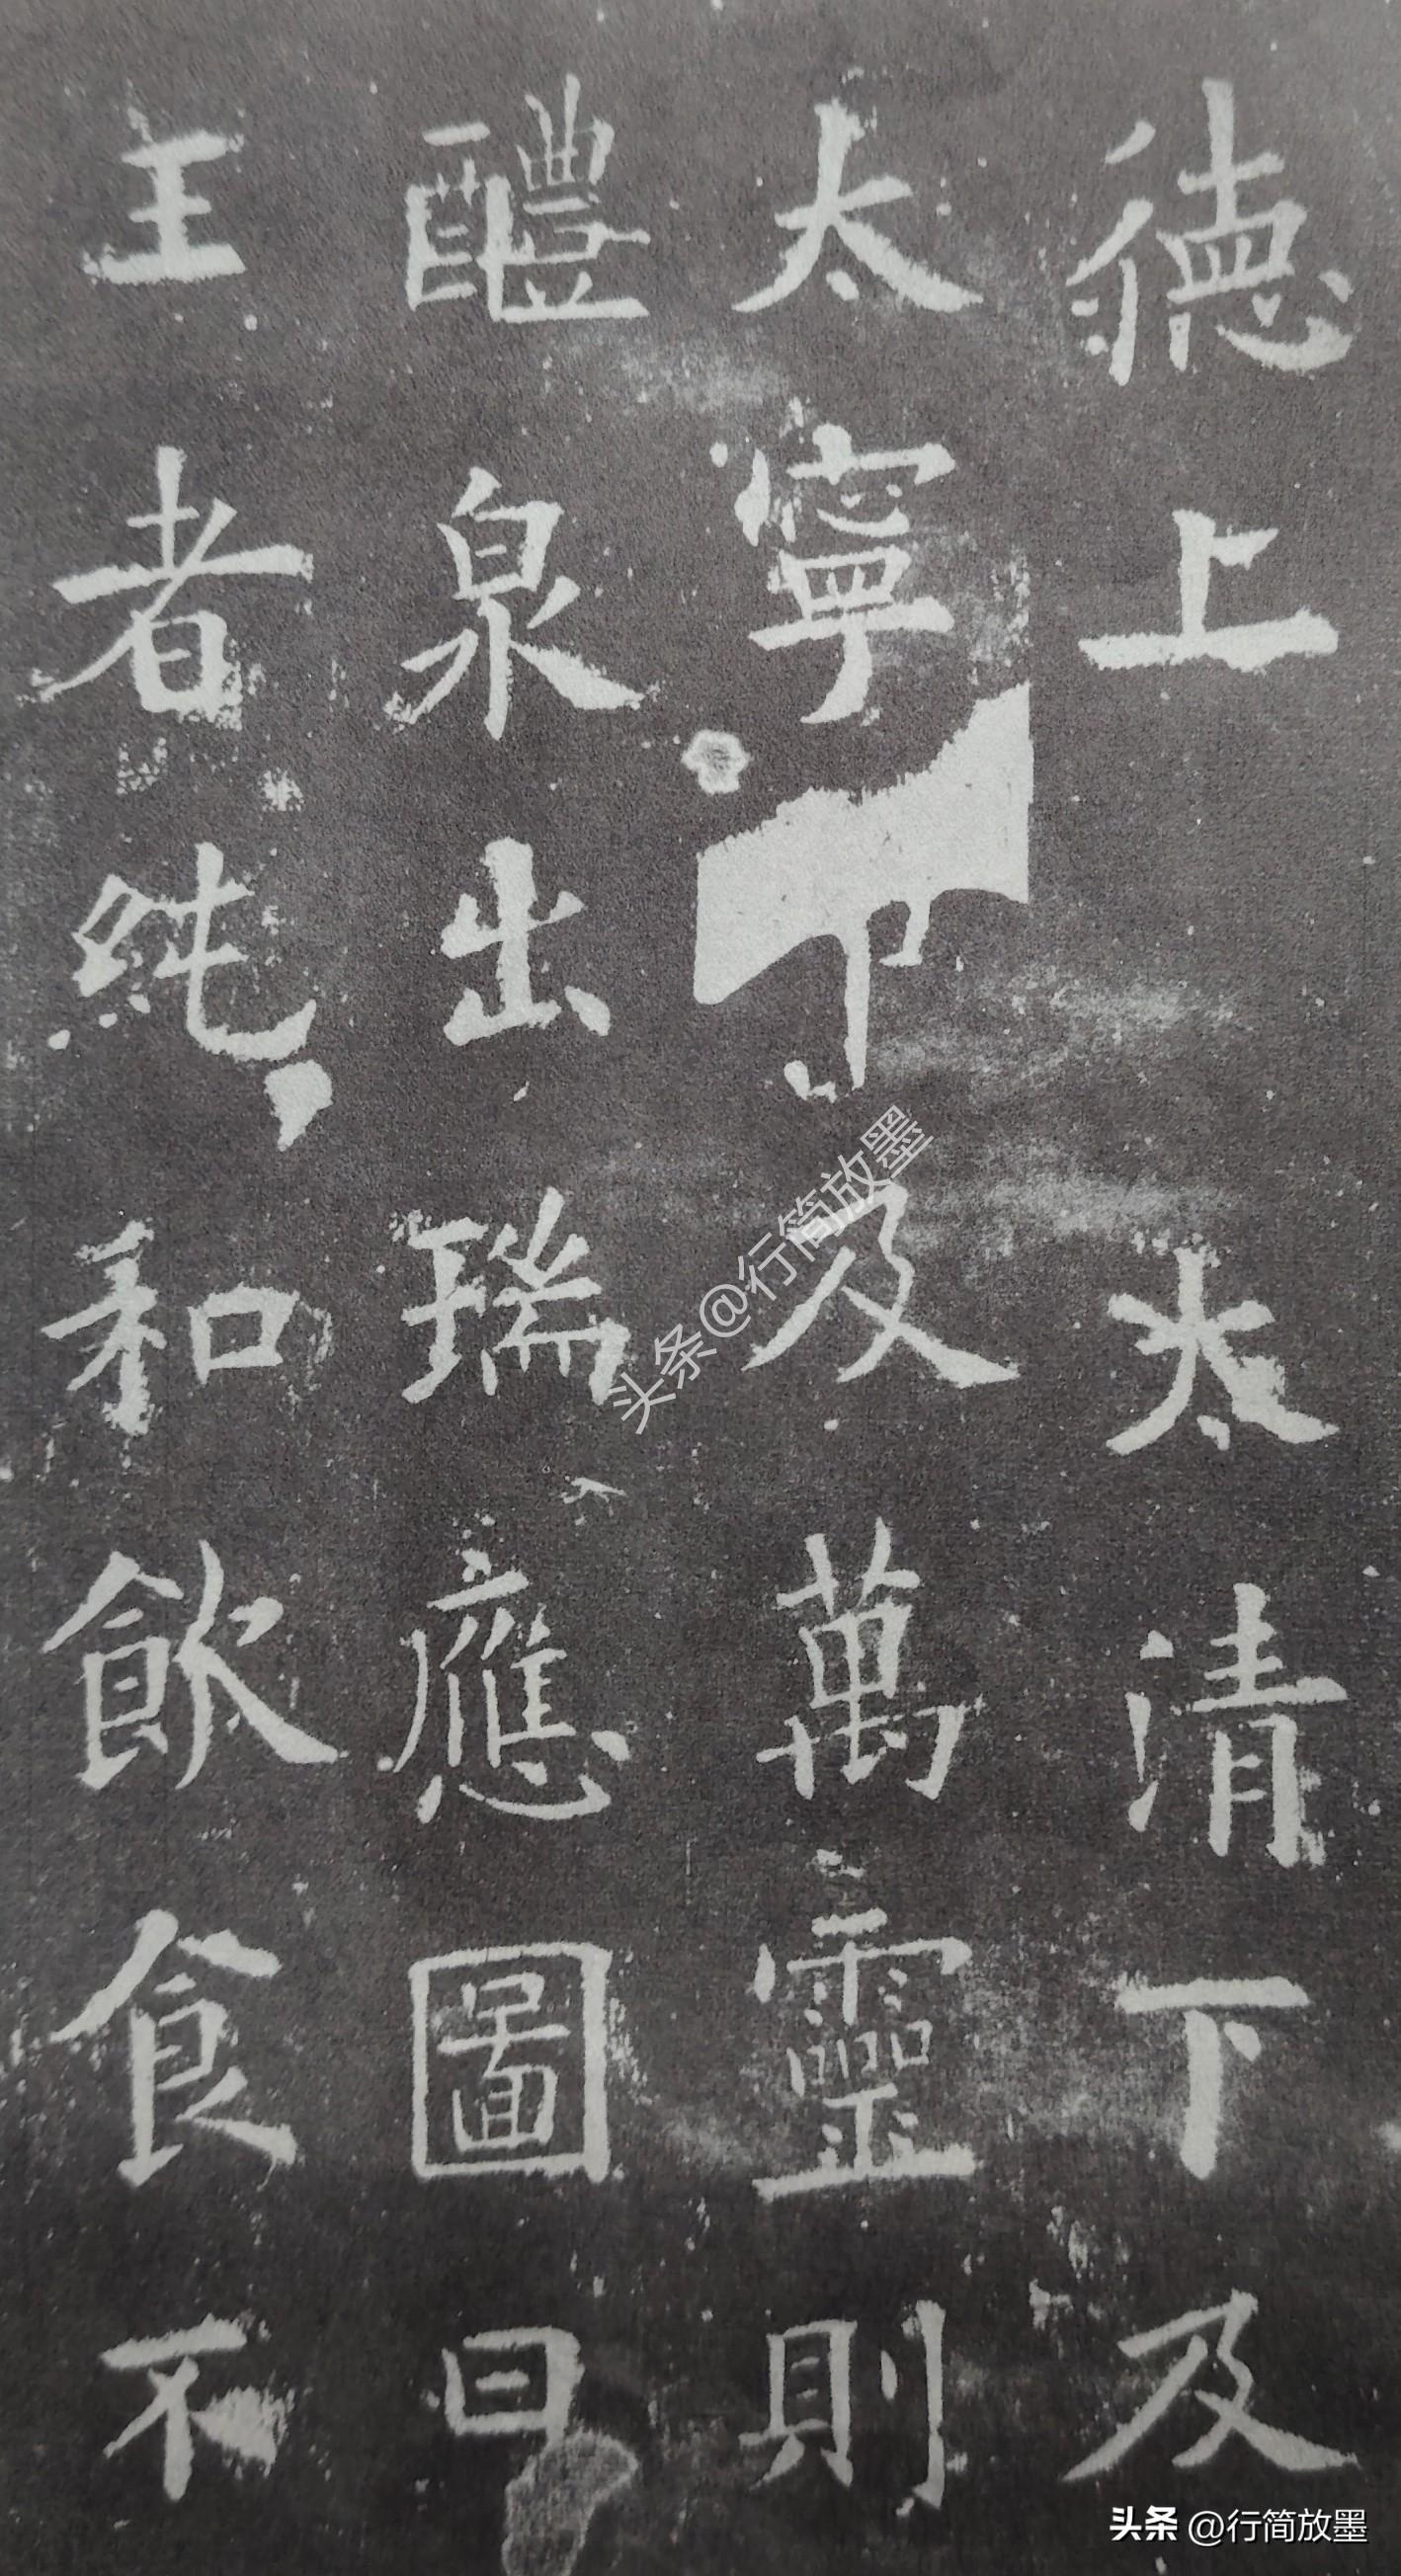 德上太清下及
太寧及萬靈則
醴泉出瑞應圖曰
王者純和飲食不
头条@行简放墨
头条 @行简放墨